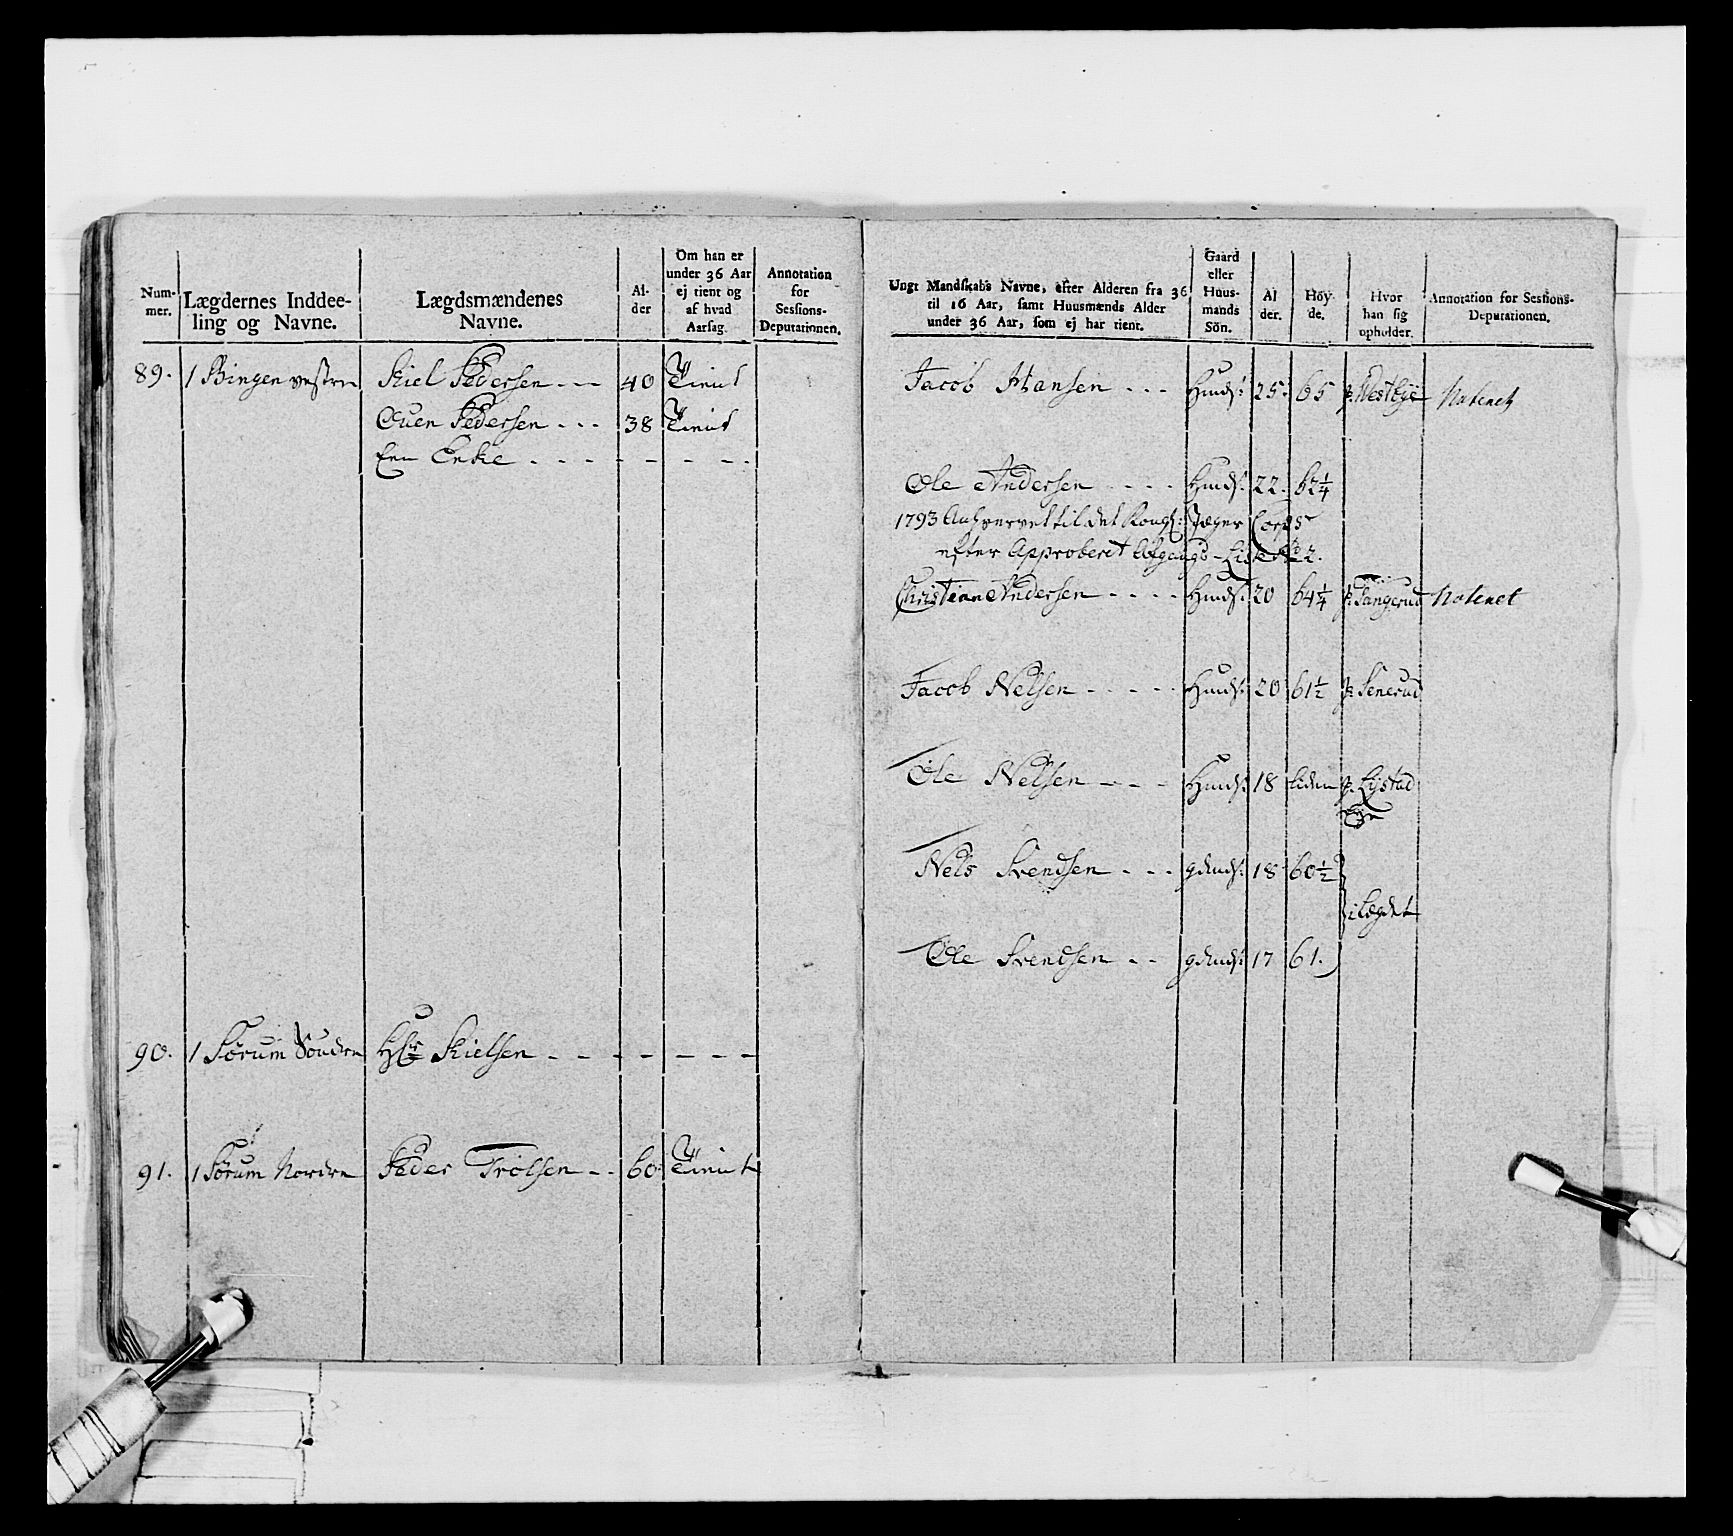 Num-
mer.
Lægdernes Inddee-
ling og Navne.
Lægdsmændenes
Navne.
Al-
der
Om han er
under 36 Aar
ej tient og
af hvad
Aarsag.
Annotation
for
Sessions-
Deputationen.
89. 1 Bingen vestre Kiel Pedersen - - - 40 Tient
Ouen Pedersen - - - 38 Tient
Een Enke - - - - - - -
90. 1 Sørum Søndre Hr Kielsen - - - - - -
91. 1 Sørum Nordre Peder Trolsen - - 60 Tient
Ungt Mandskabs Navne, efter Alderen fra 36
til 16 Aar, samt Huusmænds Alder
under 36 Aar, som ej har tient.
Gaard
eller
Huus-
mands
Søn.
Al
der.
Høy-
de.
Hvor
han sig
opholder.
Annotation for Sessions-
Deputationen.
Jacob Hansen - - - Hmds: 25 65 p. Westbye Noteret
Ole Andersen - - - - Hmds: 22. 62 1/4
1793 Anhvervet til det Kongl: Jæger Corps
efter Approberet Afgangs-Liste No 2.
Christian Andersen - - - - Hmds: 20 64 1/4 p. Tangerud Noteret
Jacob Nelsen - - - - - Hmds: 20 61 1/2 p. Senerud
Ole Nelsen - - - Hmds: 18 liden p. Lystad
Eje
Nels Svendsen - - - gdmds: 18 60 1/2
i Lægdet
Ole Svendsen - - gdmds: 17 61.